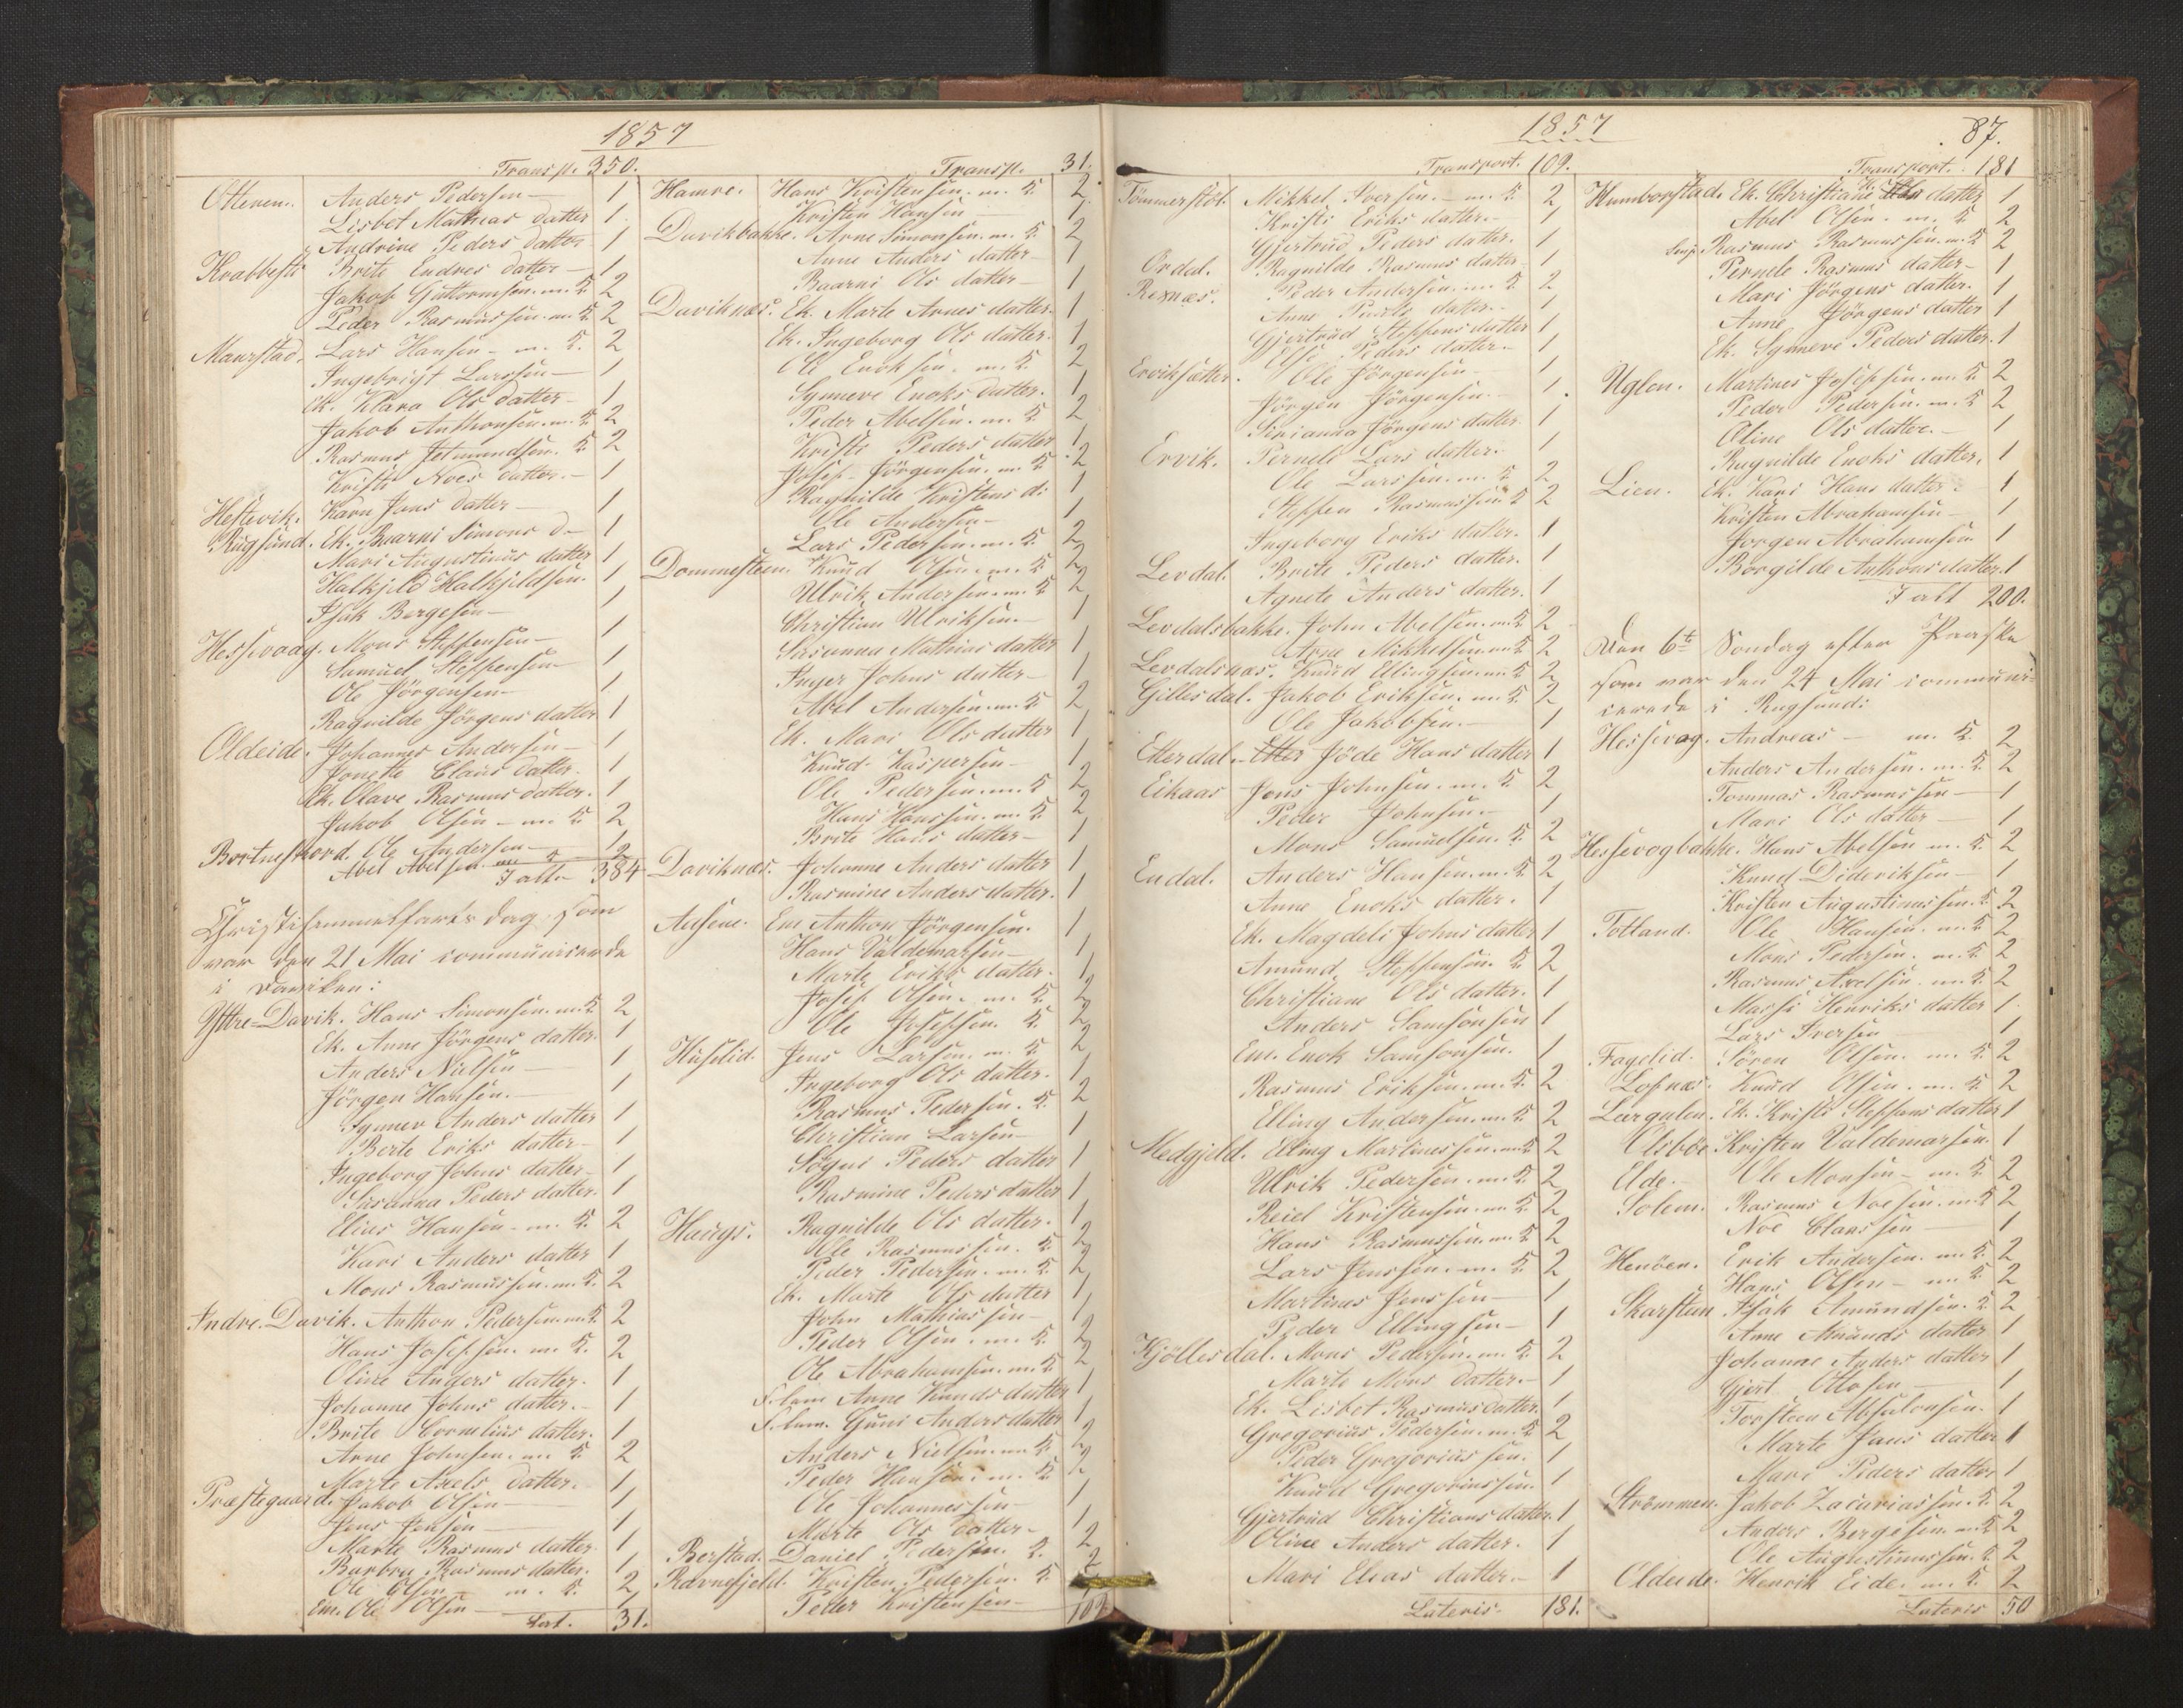 1857
Transp. 350.
Otteren. Anders Pedersen 1
Lisbet Mathias datter 1
Andrine Peders datter 1
Krabbestø Brite Endres datter 1
Jakob Guttormsen m. K. 2
Peder Rasmussen m. K. 2
Maurstad. Lars Hansen m. K. 2
Ingebrigt Larssen 1
Ek. Klara Ols datter 1
Jakob Anthonsen m. K. 2
Rasmus Jetmundsen. K. 2
Kristi Noes datter. 1
Hestevik. Karn Jans datter 1
Rugsund. Ek. Baarni Simons d. 1
Mari Augustinus datter 1
Halkjeld Halkjeldsen. 1
Isak Bergesen 1
Hessevaag. Mons Steffensen 1
Samuel Steffensen 1
Ole Jörgensen 1
Ragnilde Jörgens datter 1
Oldeide. Johannes Andersen 1
Jonette Claus datter. 1
Ek. Olave Rasmus datter. 1
Jakob Olsen m. K. 2
Bortnefjord. Ole Andersen 1
Abel Abelsen m. K. 2
I alt 384
Christihimmelfarts dag, som
var den 21 Mai communicerede
i Daviken:
Yttre-Davik. Hans Simonsen m. K. 2
Ek. Anne Jörgens datter. 1
Anders Nielsen 1
Jörgen Hansen. 1
Synnev Anders datter 1
Berte Eriks datter 1
Ingeborg Johns datter 1
Susanna Peders datter. 1
Elias Hansen m. K. 2
Kari Anders datter 1
Mons Rasmussen m. K. 2
Indre Davik. Anthon Pedersen m. K. 2
Hans Josefsen m. K. 2
Oline Anders datter. 1
Johanne Johns datter. 1
Brite Cornelius datter. 1
Arne Johnsen m. K. 2
Marte Axels datter. 1
Præstegaard. Jakob Olsen 1
Jens Jensen 1
Marte Rasmus datter. 1
Barbra Rasmus datter. 1
Ole Olsen m. K. 2
Em. Ole Olsen 1
Lat. 31.
Transp. 31.
Hamre. Hans Kristensen m. K. 2
Kristen Hansen 1
Davikbakke. Arne Simonsen m. K. 2
Anne Anders datter 1
Baarni Ols datter 1
Daviknæs. Ek. Marte Arnes datter. 1
Ek. Ingeborg Ols datter. 1
Ole Enoksen m. K. 2
Synneve Enoks datter. 1
Peder Abelsen m. K. 2
Kristi Peders datter 1
Josef Jörgensen m. K. 2
Ragnilde Kristens d: 1
Ole Andersen 1
Lars Pedersen m. K. 2
Dommesteen. Knud Olsen m. K. 2
Ulrik Andersen m. K. 2
Christian Ulriksen. 1
Susanna Mathias datter 1
Inger Johns datter 1
Abel Andersen m. K. 2
Ek. Mari Ols datter 1
Knud Kaspersen 1
Ole Pedersen m. K. 2
Hans Hanssen m. K. 2
Brite Hans datter 1
Daviknæs. Johanne Anders datter 1
Rasmine Anders datter. 1
Aasene. Em Anthon Jörgensen. 1
Hans Valdemarsen 1
Marte Eriks datter. 1
Josef Olsen m. K. 2
Ole Josefsen K. 2
Huselid. Jens Larsen m. K. 2
Ingeborg Ols datter. 1
Rasmus Pedersen. K. 2
Christian Larsen 1
Søgni Peders datter 1
Rasmine Peders datter 1
Haugs. Ragnilde Ols datter. 1
Ole Rasmussen. K. 2
Peder Pedersen m. K. 2
Ek. Marte Ols datter 1
John Mathiassen 1
Peder Olsen m. K. 2
Ole Abrahamsen m. K. 2
F. lem Anne Knuds datter 1
F. lem. Guni Anders datter 1
Anders Nielsen m. K. 2
Peder Hansen m. K. 2
Ole Johannessen 1
Marte Ols datter 1
Berstad. Daniel Pedersen. K. 2
Ravnefjeld. Kristen Pedersen. K. 2
Peder Kristensen 1
109
1857
87.
Transport. 109.
Tømmerstøl. Mikkel Iversen m. K. 2
Kristi Eriks datter. 1
Gjertrud Peders datter. 1
Ørdal. Ragnilde Rasmus datter 1
Rexnæs. Peder Andersen m. K. 2
Anne Peders datter. 1
Gjertrud Steffens datter 1
Else Peders datter. 1
Erviksæter. Ole Jörgensen 1
Jörgen Jörgensen. 1
Sirianna Jörgens datter. 1
Ervik. Pernele Lars datter. 1
Ole Larssen m. K. 2
Steffen Rasmussen K 2
Ingeborg Eriks datter. 1
Levdal. Brite Peders datter. 1
Agnete Anders datter. 1
Levdalsbakke. John Abelsen m. K. 2
Arne Mikkelsen m. K. 2
Levdalsnæs. Knud Ellingsen m. K. 2
Gillesdal. Jakob Eriksen m. K. 2
Ole Jakobsen. 1
Etterdal. Jöde Hans datter 1
Eikaas Jons Johnsen m. K. 2
Peder Johnsen. 1
Mons Samuelsen. K. 2
Endal. Anders Hansen m. K. 2
Anne Enoks datter. 1
Ek. Magdeli Johns datter 1
Amund Steffensen K. 2
Christiane Ols datter. 1
Anders Samsonsen 1
Em. Enok Samsonsen. 1
Rasmus Eriksen m. K. 2
Elling Andersen m. K. 2
Medgjeld. Elling Martinussen m. K. 2
Ulrik Pedersen m. K. 2
Reiel Kristensen m. K. 2
Hans Rasmussen m. K. 2
Lars Jenssen m. K. 2
Martinus Jenssen 1
Peder Ellingsen 1
Kjöllesdal. Mons Pedersen m. K. 2
Marte Mons datter. 1
Ek. Lisbet Rasmus datter. 1
Gregorius Pedersen m. K. 2
Peder Gregoriussen. 1
Knud Gregoriussen. 1
Gjertrud Christians datter. 1
Oline Anders datter. 1
Mari Elias datter. 1
Lateris. 181.
Transport. 181
Humborstad. Ek. Christiane datter 1
Abel Olsen m. K. 2
Rasmus Rasmussen m. K. 2
Pernele Rasmus datter 1
Mari Jörgens datter. 1
Anne Jörgens datter 1
Ek. Synneve Peders datter. 1
Uglen. Martines Josefsen m. K. 2
Peder Pedersen m. K. 2
Oline Ols datter. 1
Ragnilde Enoks datter. 1
Lien. Ek. Kari Hans datter. 1
Kristen Abrahamsen 1
Jörgen Abrahamsen 1
Borgilde Anthons datter. 1
I alt 200.
Den 6te Søndag efter Paaske
som var den 24 Mai communi-
cerede i Rugsund:
Hessevog. Andreas m. K. 2
Anders Andersen m. K. 2
Tommas Rasmussen 1
Mari Ols datter 1
Hessevogbakke. Hans Abelsen m. K. 2
Knud Dideriksen 1
Kristen Augustinussen. K. 2
Totland. Ole Hansen m. K. 2
Mons Pedersen. m. K. 2
Rasmus Axelsen. m. K. 2
Massi Henriks datter 1
Lars Iversen 1
Fagelid. Sören Olsen m. K. 2
Lofnæs. Knud Olsen. m. K. 2
Largulen. Ek. Kristi Steffens datter 1
Olsböe Kristen Valdemarsen. 1
Elde. Ole Monsen m. K. 2
Solem. Rasmus Noesen m. K. 2
Noe Claussen 1
Henöen. Erik Andersen. m. K. 2
Hans Olsen m. K. 2
Skarsteen Isak Amundsen. K. 2
Anne Amunds datter 1
Johanne Anders datter 1
Gjert Ottosen 1
Torsteen Absalonsen. 1
Marte Jans datter 1
Mari Peders datter 1
Strömmen. Jakob Zacariassen. K. 2
Anders Bergesen m. K. 2
Ole Augustinussen. K. 2
Oldeide. Henrik Eide m. K. 2
Lateris 50